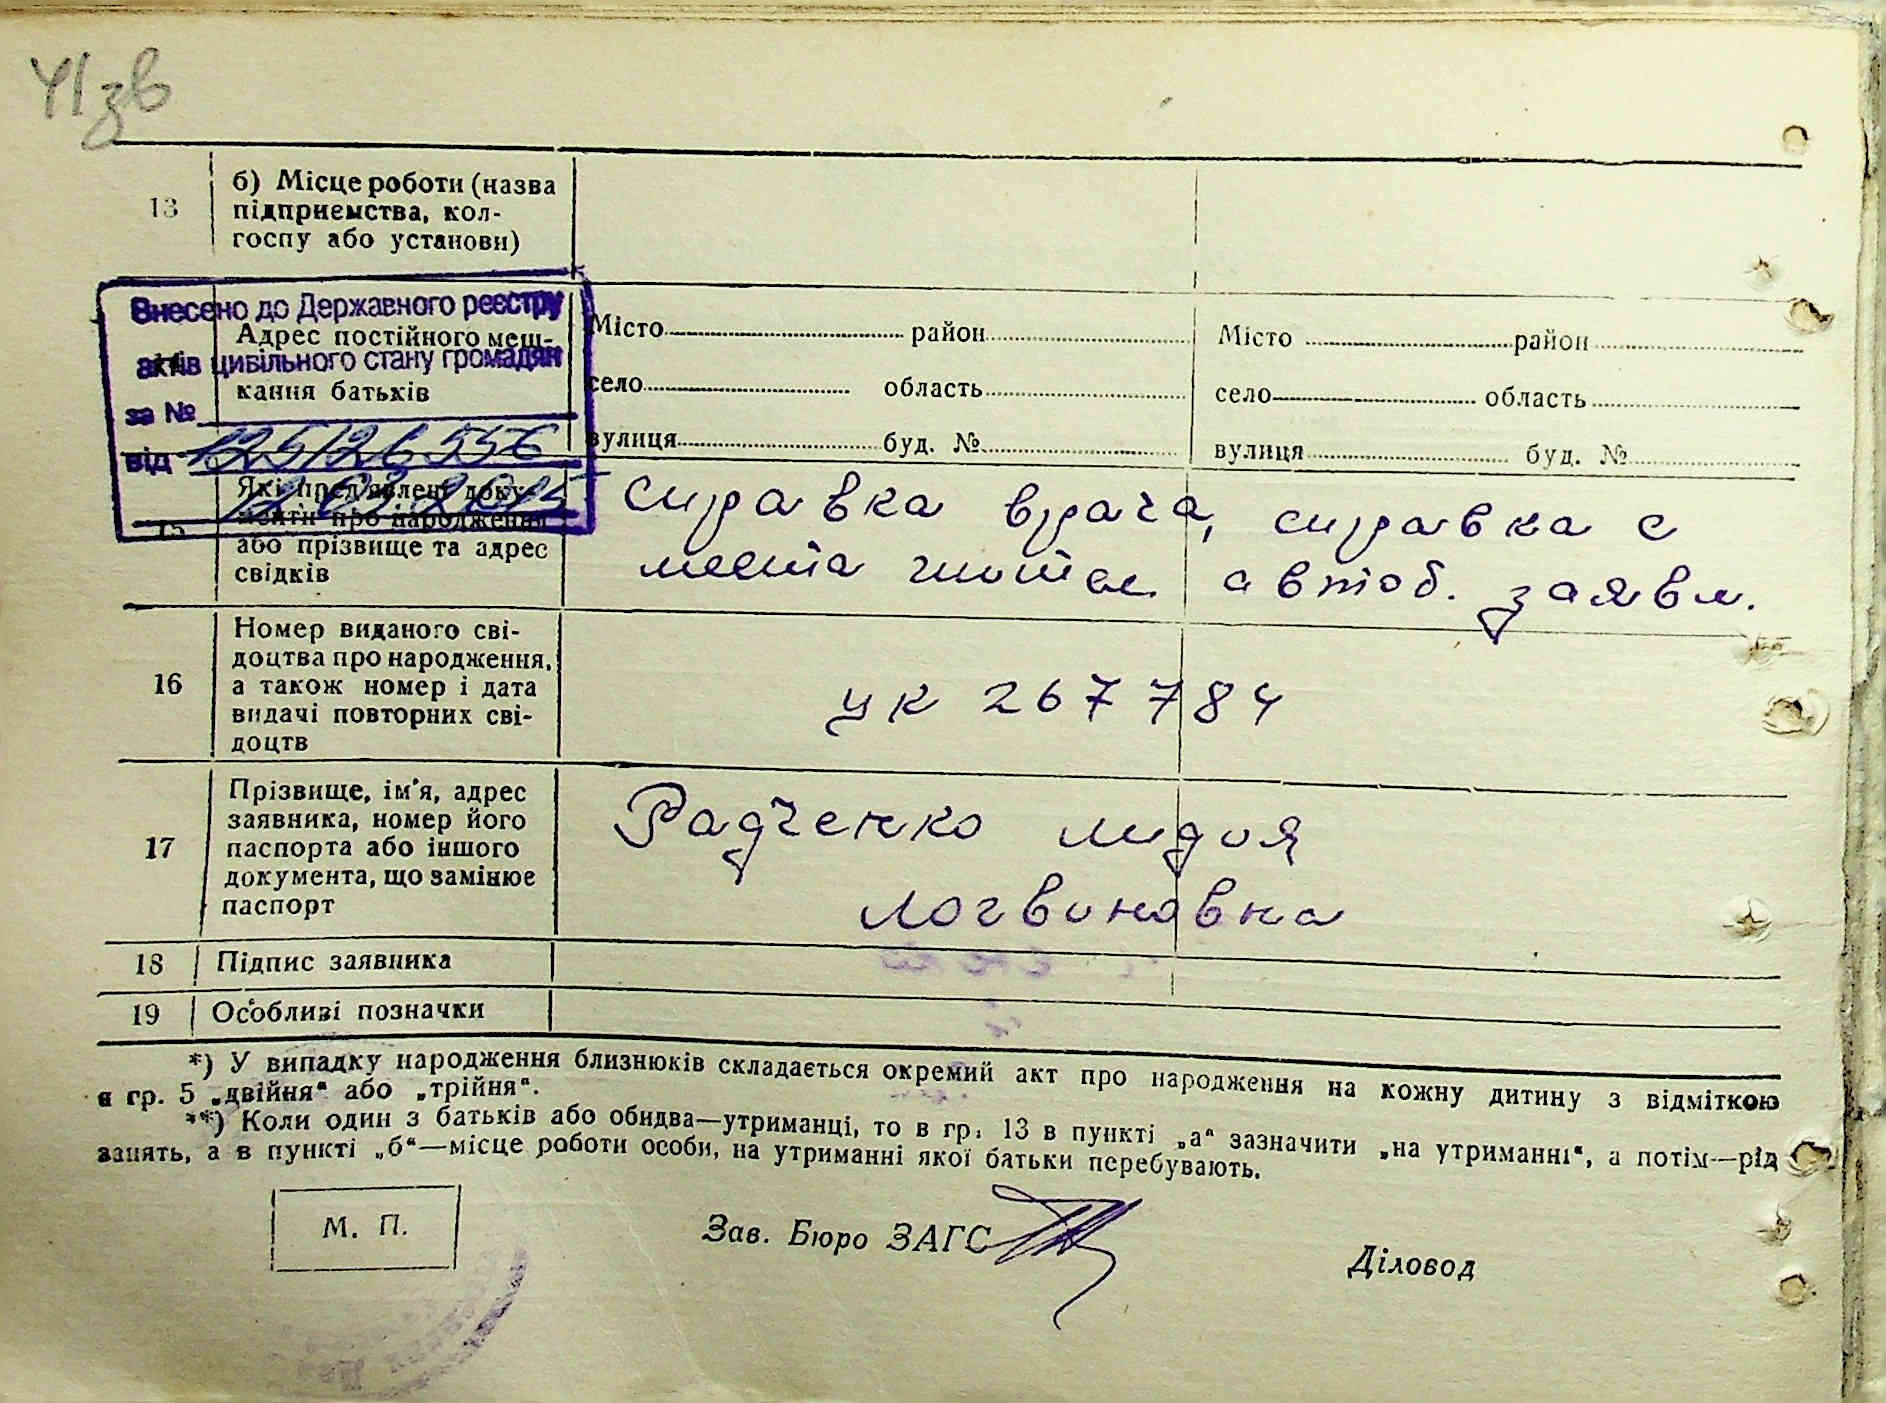 41зв
13
б) Місце роботи (назва
підприємства, кол-
госпу або установи)
Внесено до Державного реєстру
актів цивільного стану громадян
за №
125126556
від
Адрес постійного меш-
кання батьків
Місто район
село область
вулиця буд. №
Місто район
село область
вулиця буд. №
15
Які пред'явлені доку-
менти про народження
або прізвище та адрес
свідків
справка врача, справка с
места автоб. заявл.
16
Номер виданого сві-
доцтва про народження,
а також номер і дата
видачі повторних сві-
доцтв
УК 267784
17
Прізвище, ім'я, адрес
заявника, номер його
паспорта або іншого
документа, що замінює
паспорт
Радченко Лидия
Логвиновна
18 Підпис заявника
19 Особливі позначки
*) У випадку народження близнюків складається окремий акт про народження на кожну дитину з відміткою
в гр. 5 „двійня“ або „трійня“.
**) Коли один з батьків або обидва—утриманці, то в гр. 13 в пункті „а“ зазначити „на утриманні“, а потім—рід
занять, а в пункті „б“—місце роботи особи, на утриманні якої батьки перебувають.
М. П.
Зав. Бюро ЗАГС
Діловод